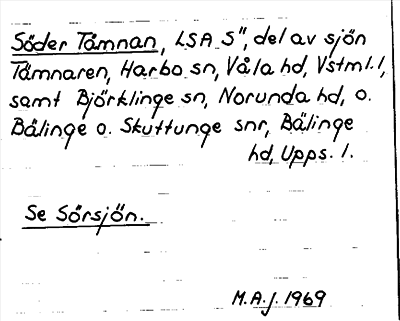 Söder Tämnan, LSA S", del av sjön
Tämnaren, Harbo sn, Våla hd, Vstml. l,
samt Björklinge sn, Norunda hd, o.
Bälinge o. Skuttunge snr, Bälinge
hd, Upps. l.
Se Sörsjön.
M.A.J. 1969